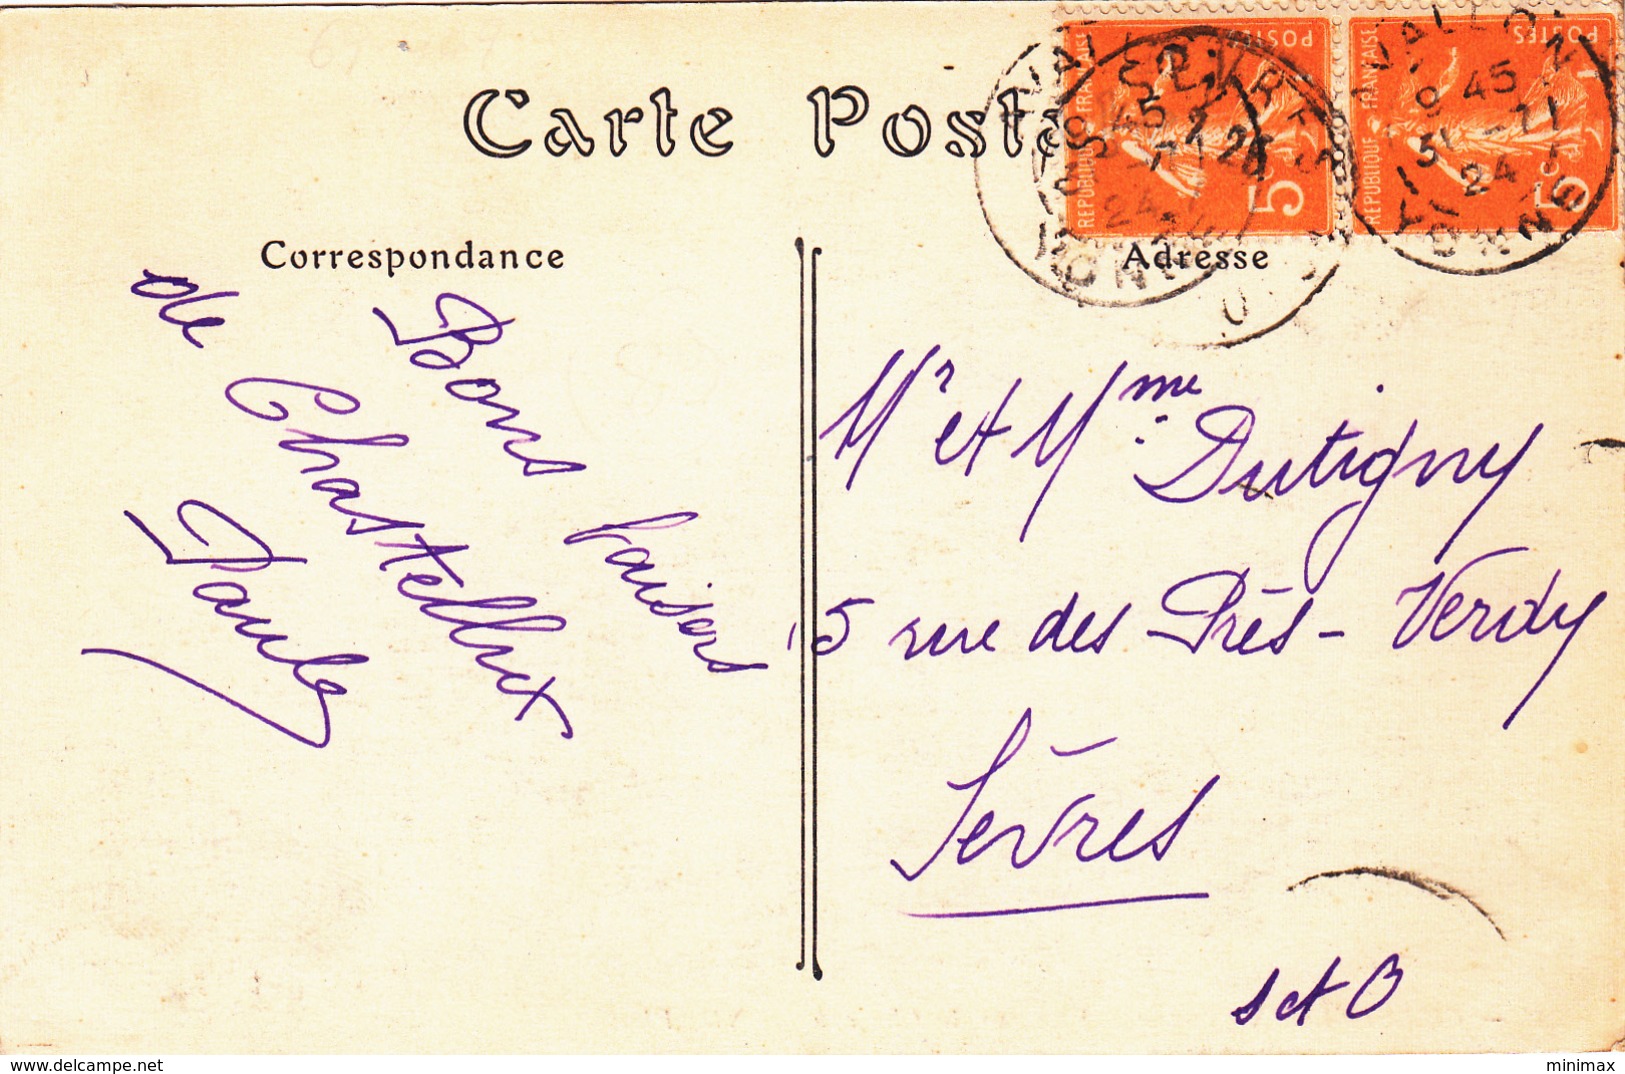 Carte Posta
Correspondance
Adresse
POSTES
REPUBLIQUE FRANÇAISE
5c
POSTES
REPUBLIQUE FRANÇAISE
5c
AVALLON
9 45
31 -7
24
YONNE
SEVRES
Bons baisers
de Chastellux
Paule
Mr et Mme Dutigny
15 rue des Près-Verdy
Sèvres
s et O
delcampe.net
minimax